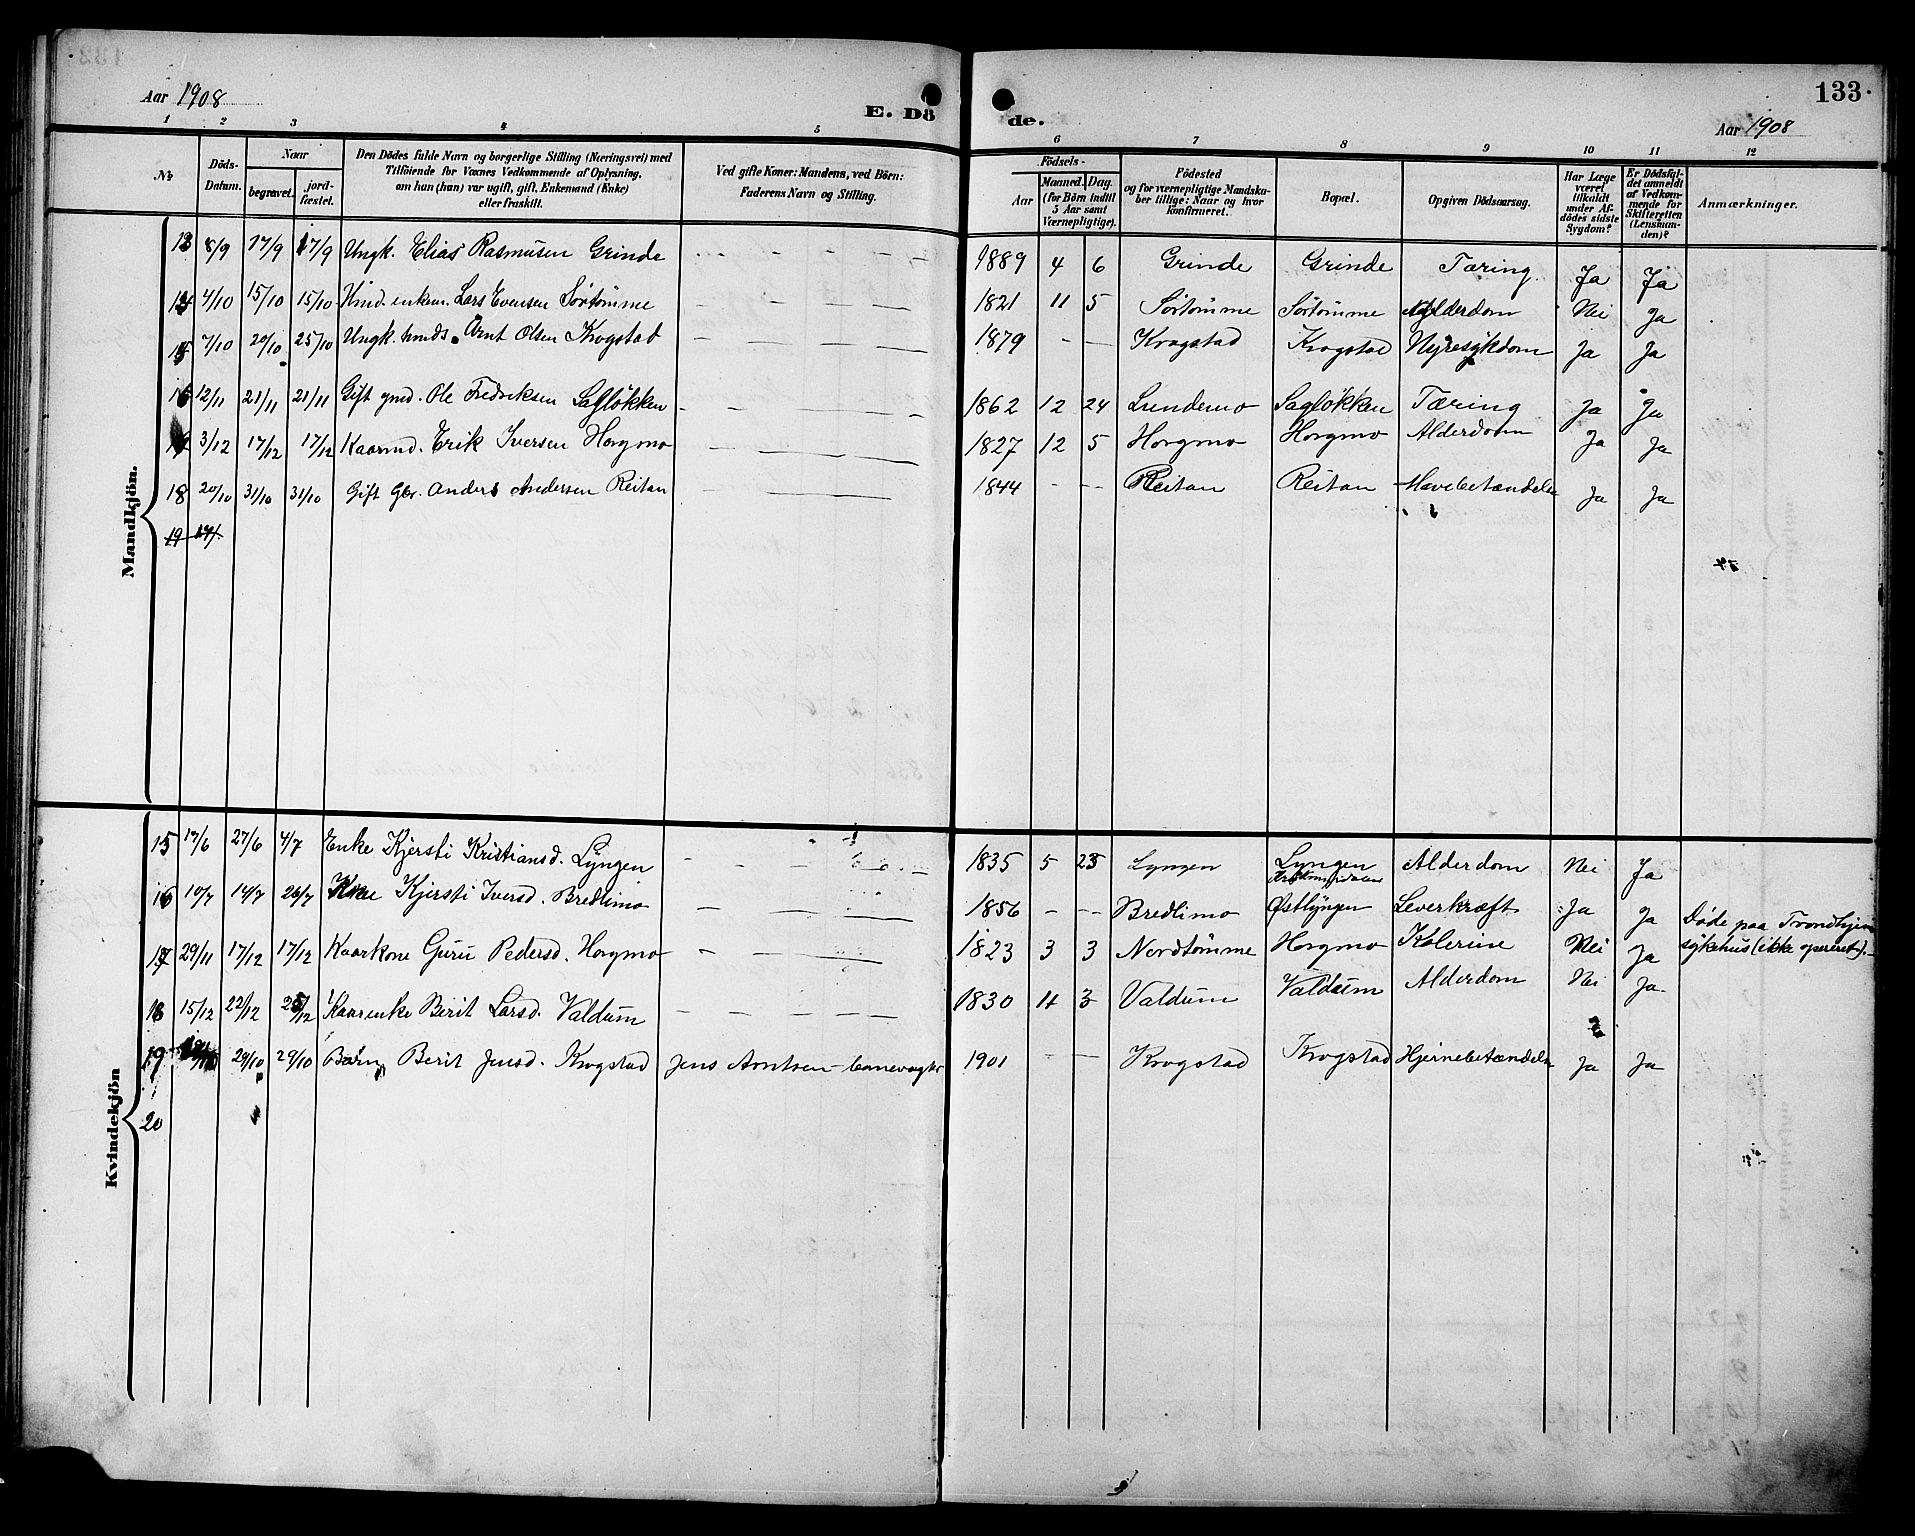 133.
Aar 1908
E. Döde.
Aar 1908
1 2 3 4 5 6 7 8 9 10 11 12
No
Döds-Datum.
Naar
begravet.
jord-fæstet.
Den Dödes fulde Navn og borgerlige Stilling (Næringsvei) med
Tilföiende for Voxnes Vedkommende af Oplysning,
om han (hun) var ugift, gift, Enkemand (Enke)
eller fraskilt.
Ved gifte Koner: Mandens, ved Börn:
Faderens Navn og Stilling.
Födsels-
Aar
Maaned. Dag.
(for Børn indtil
5 Aar samt
Værnepligtige).
Födested
og for værnepligtige Mandska-
ber tillige: Naar og hvor
konfirmeret.
Bopæl.
Opgiven Dödsaarsag.
Har Læge
været
tilkaldt
under Af-
dödes sidste
Sygdom?
Er Dödsfal-
det anmeldt
af Vedkom-
mende for
Skifteretten
(Lensman-
den)?
Anmærkninger.
Mandkjön.
13 8/9 17/9 17/9 Ungk. Elias Rasmusen Grinde — — — — 1889 4 6 Grinde Grinde Tæring Ja Ja
14 4/10 15/10 15/10 Kaard. enkem. Lars Evensen Sörtömme — — — — 1821 11 5 Sörtömme Sörtömme Alderdom Nei Ja
15 7/10 20/10 25/10 Ungk. Arnt Olsen Krogstad — — — — 1879 — — Krogstad Krogstad Nyresykdom Ja Ja
16 12/11 21/11 21/11 Gift gmd. Ole Fredriksen Saglökken — — — — 1862 12 24 Lundemo Saglökken Tæring Ja Ja
17 3/12 17/12 17/12 Kaarmd. Erik Iversen Horgmo — — — — 1827 12 5 Horgmo Horgmo Alderdom Ja Ja
18 20/10 31/10 31/10 Gift Gbr. Anders Andersen Reitan — — — — 1844 — — Reitan Reitan Mavebetændelse Ja Ja
19
Kvindekjön
15 17/6 27/6 4/7 Enke Kjersti Kristiansd. Lyngen — — — — 1835 5 25 Lyngen Lyngen Alderdom Nei Ja
16 10/7 14/7 26/7 Kone Kjersti Iversd. Bredlimo — — — — 1856 — — Bredlimo Østlyngen Leverkræft Ja Ja Døde paa Trondhjems
sykehus (ikke operert).
17 29/11 17/12 17/12 Kaarkone Guru Pedersd. Horgmo — — — — 1823 3 3 Nordtömme Horgmo Kolerine Nei Ja
18 15/12 22/12 25/12 Kaarenke Berit Larsd. Valdum — — — — 1830 11 3 Valdum Valdum Alderdom Nei Ja
19 29/10 29/10 Barn Berit Jensd. Krogstad Jens Arntsen banevogter 1901 — — Krogstad Krogstad Hjernebetændelse Ja Ja
20